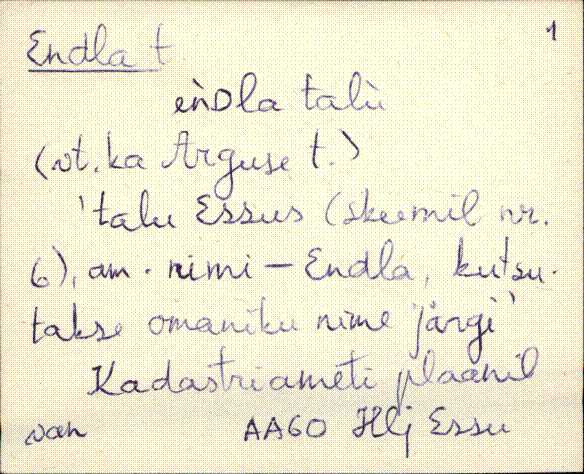 1
Endla t.
eǹDla talù
(vt. ka Arguse t.)
'talu Essus (skeemil nr.
6), am. nimi – Endla, kutsu-
takse omaniku nime järgi'
Kadastriameti plaanil
van AA60 Hlj Essu